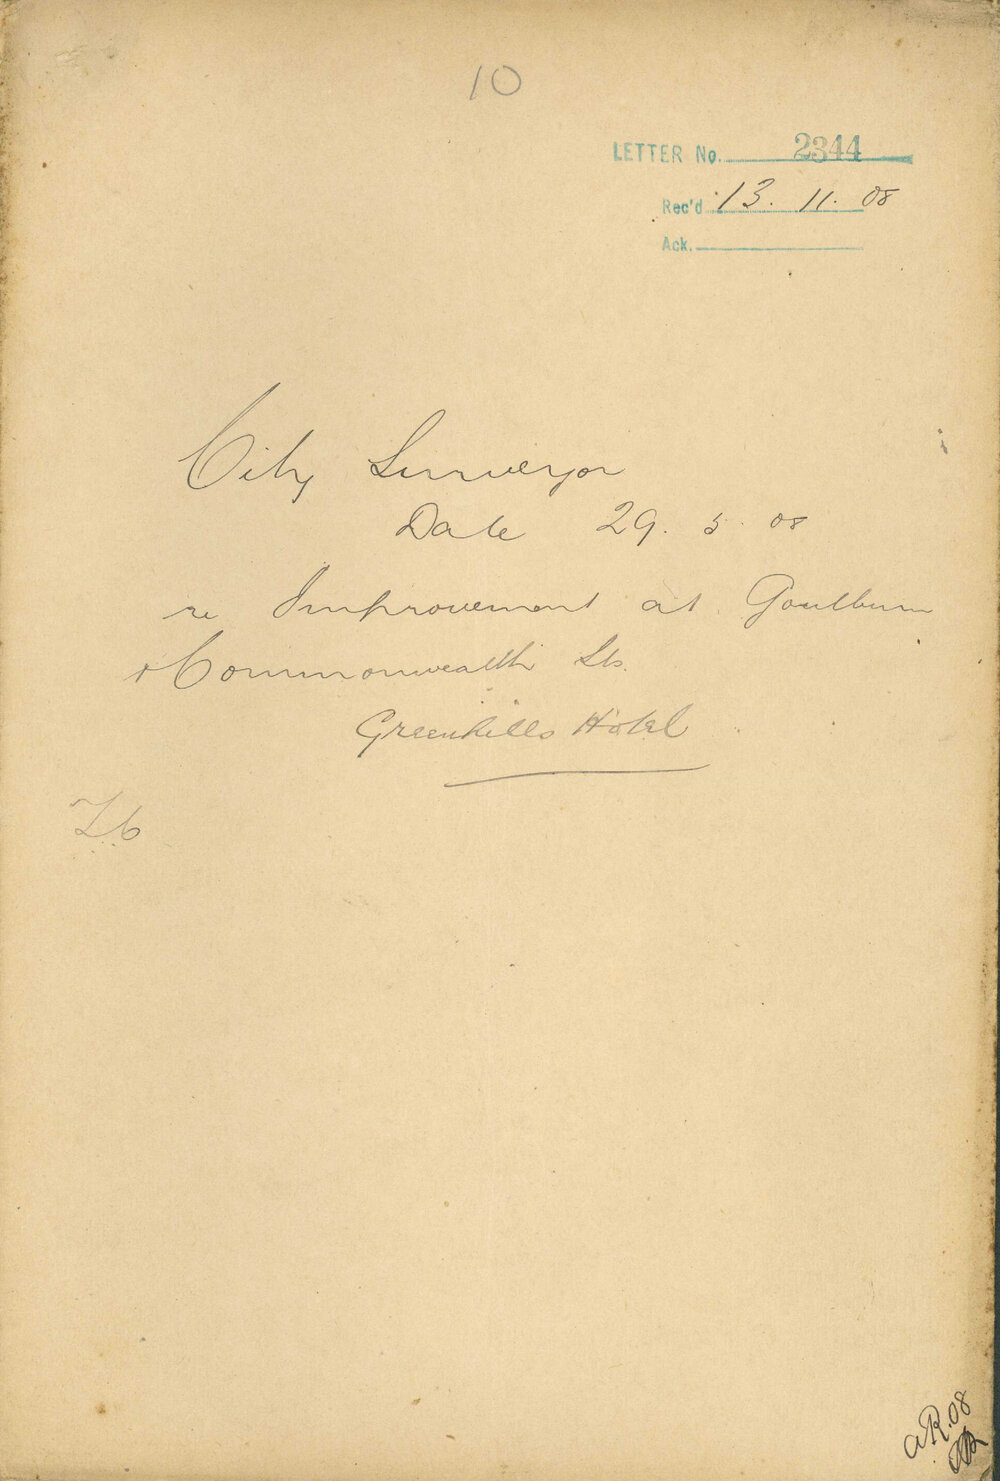 10
LETTER No. 2344
Rec'd 13. 11. 08
Ack.
City Surveyor
Date 29. 5. 08
re Improvement at Goulburn
& Commonwealth Sts.
Greenhills Hotel
aR.08